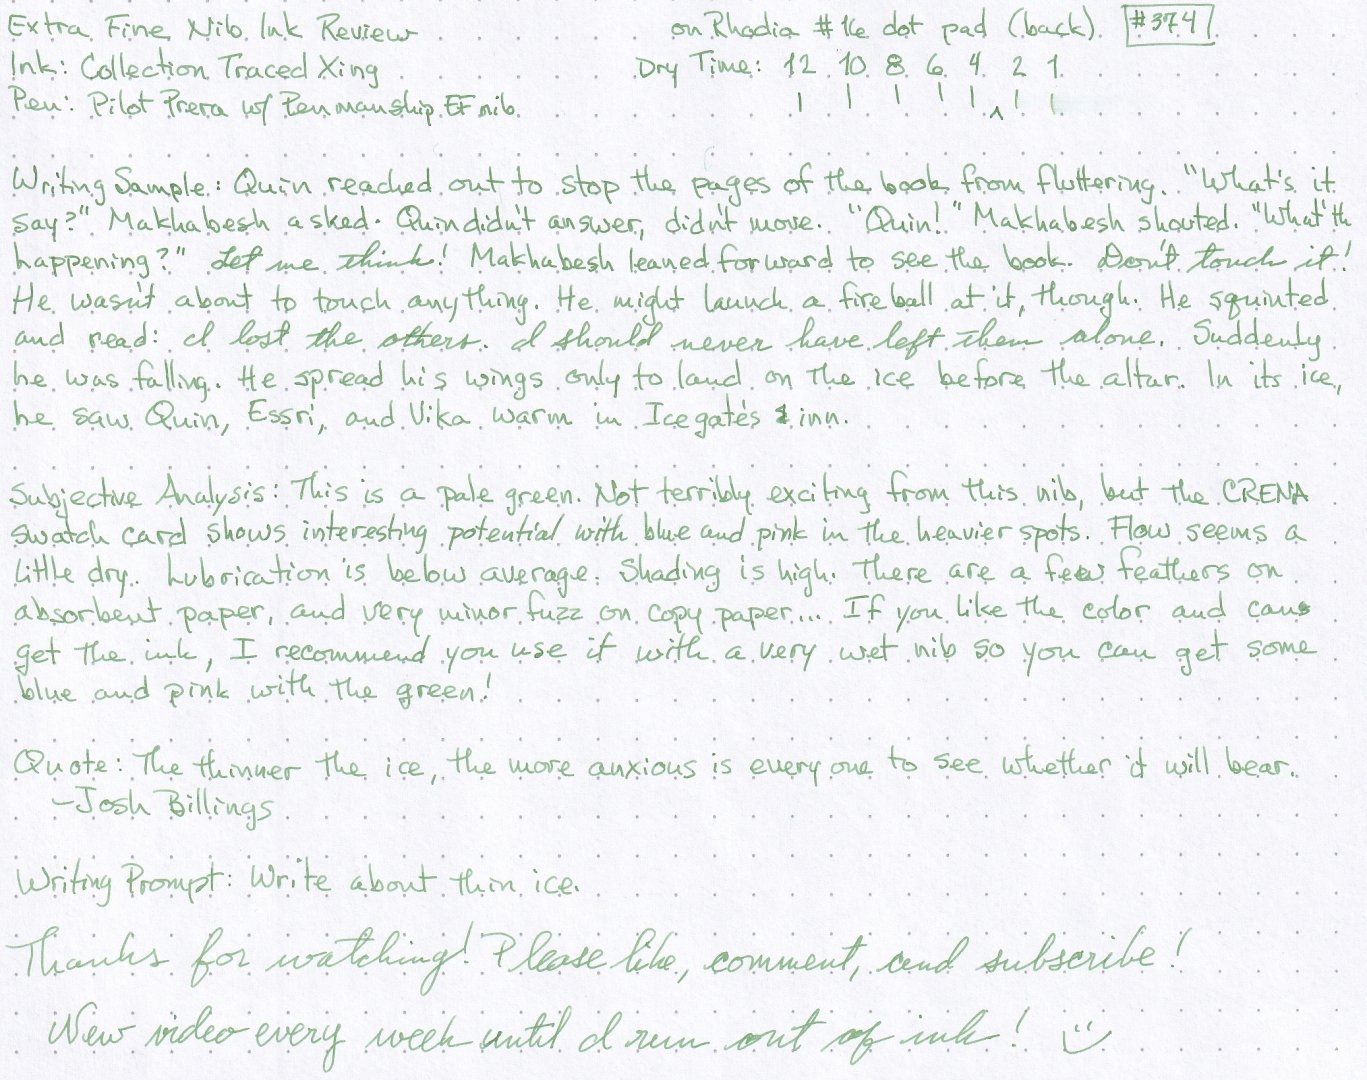 Extra Fine Nib Ink Review on Rhodia #16 dot pad (back). #374
Ink: Collection Traced Xing Dry Time: 12 10 8 6 4 2 1
Pen: Pilot Prera w/ Penmanship EF nib
Writing Sample: Quin reached out to stop the pages of the book from fluttering. "What's it
say?" Makhabesh asked. Quin didn't answer, didn't move. "Quin!" Makhabesh shouted. "What'th
happening?" Let me think! Makhabesh leaned forward to see the book. Don't touch it!
He wasn't about to touch anything. He might launch a fireball at it, though. He squinted
and read: I lost the others. I should never have left them alone. Suddenly
he was falling. He spread his wings only to land on the ice before the altar. In its ice,
he saw Quin, Essri, and Vika warm in Icegate's inn.
Subjective Analysis: This is a pale green. Not terribly exciting from this nib, but the CRENA
swatch card shows interesting potential with blue and pink in the heavier spots. Flow seems a
little dry. Lubrication is below average. Shading is high. There are a few feathers on
absorbent paper, and very minor fuzz on copy paper... If you like the color and can
get the ink, I recommend you use it with a very wet nib so you can get some
blue and pink with the green!
Quote: The thinner the ice, the more anxious is everyone to see whether it will bear.
-Josh Billings
Writing Prompt: Write about thin ice.
Thanks for watching! Please like, comment, and subscribe!
New video every week until I run out of ink!